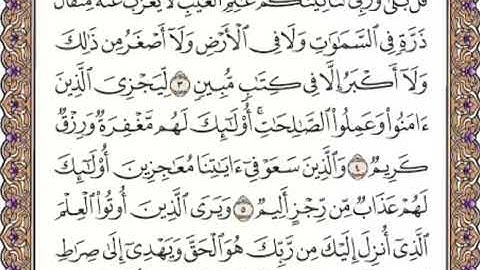 قُلْ بَلَىٰ وَرَبِّى لَتَأْتِيَنَّكُمْ عَٰلِمِ ٱلْغَيْبِ لَا يَعْزُبُ عَنْهُ مِثْقَالُ
ذَرَّةٍ فِى ٱلسَّمَٰوَٰتِ وَلَا فِى ٱلْأَرْضِ وَلَآ أَصْغَرُ مِن ذَٰلِكَ
وَلَآ أَكْبَرُ إِلَّا فِى كِتَٰبٍ مُّبِينٍ ٣ لِّيَجْزِىَ ٱلَّذِينَ
ءَامَنُوا۟ وَعَمِلُوا۟ ٱلصَّٰلِحَٰتِ ۚ أُو۟لَٰٓئِكَ لَهُم مَّغْفِرَةٌ وَرِزْقٌ
كَرِيمٌ ٤ وَٱلَّذِينَ سَعَوْ فِىٓ ءَايَٰتِنَا مُعَٰجِزِينَ أُو۟لَٰٓئِكَ
لَهُمْ عَذَابٌ مِّن رِّجْزٍ أَلِيمٌ ٥ وَيَرَى ٱلَّذِينَ أُوتُوا۟ ٱلْعِلْمَ
ٱلَّذِىٓ أُنزِلَ إِلَيْكَ مِن رَّبِّكَ هُوَ ٱلْحَقَّ وَيَهْدِىٓ إِلَىٰ صِرَٰطِ